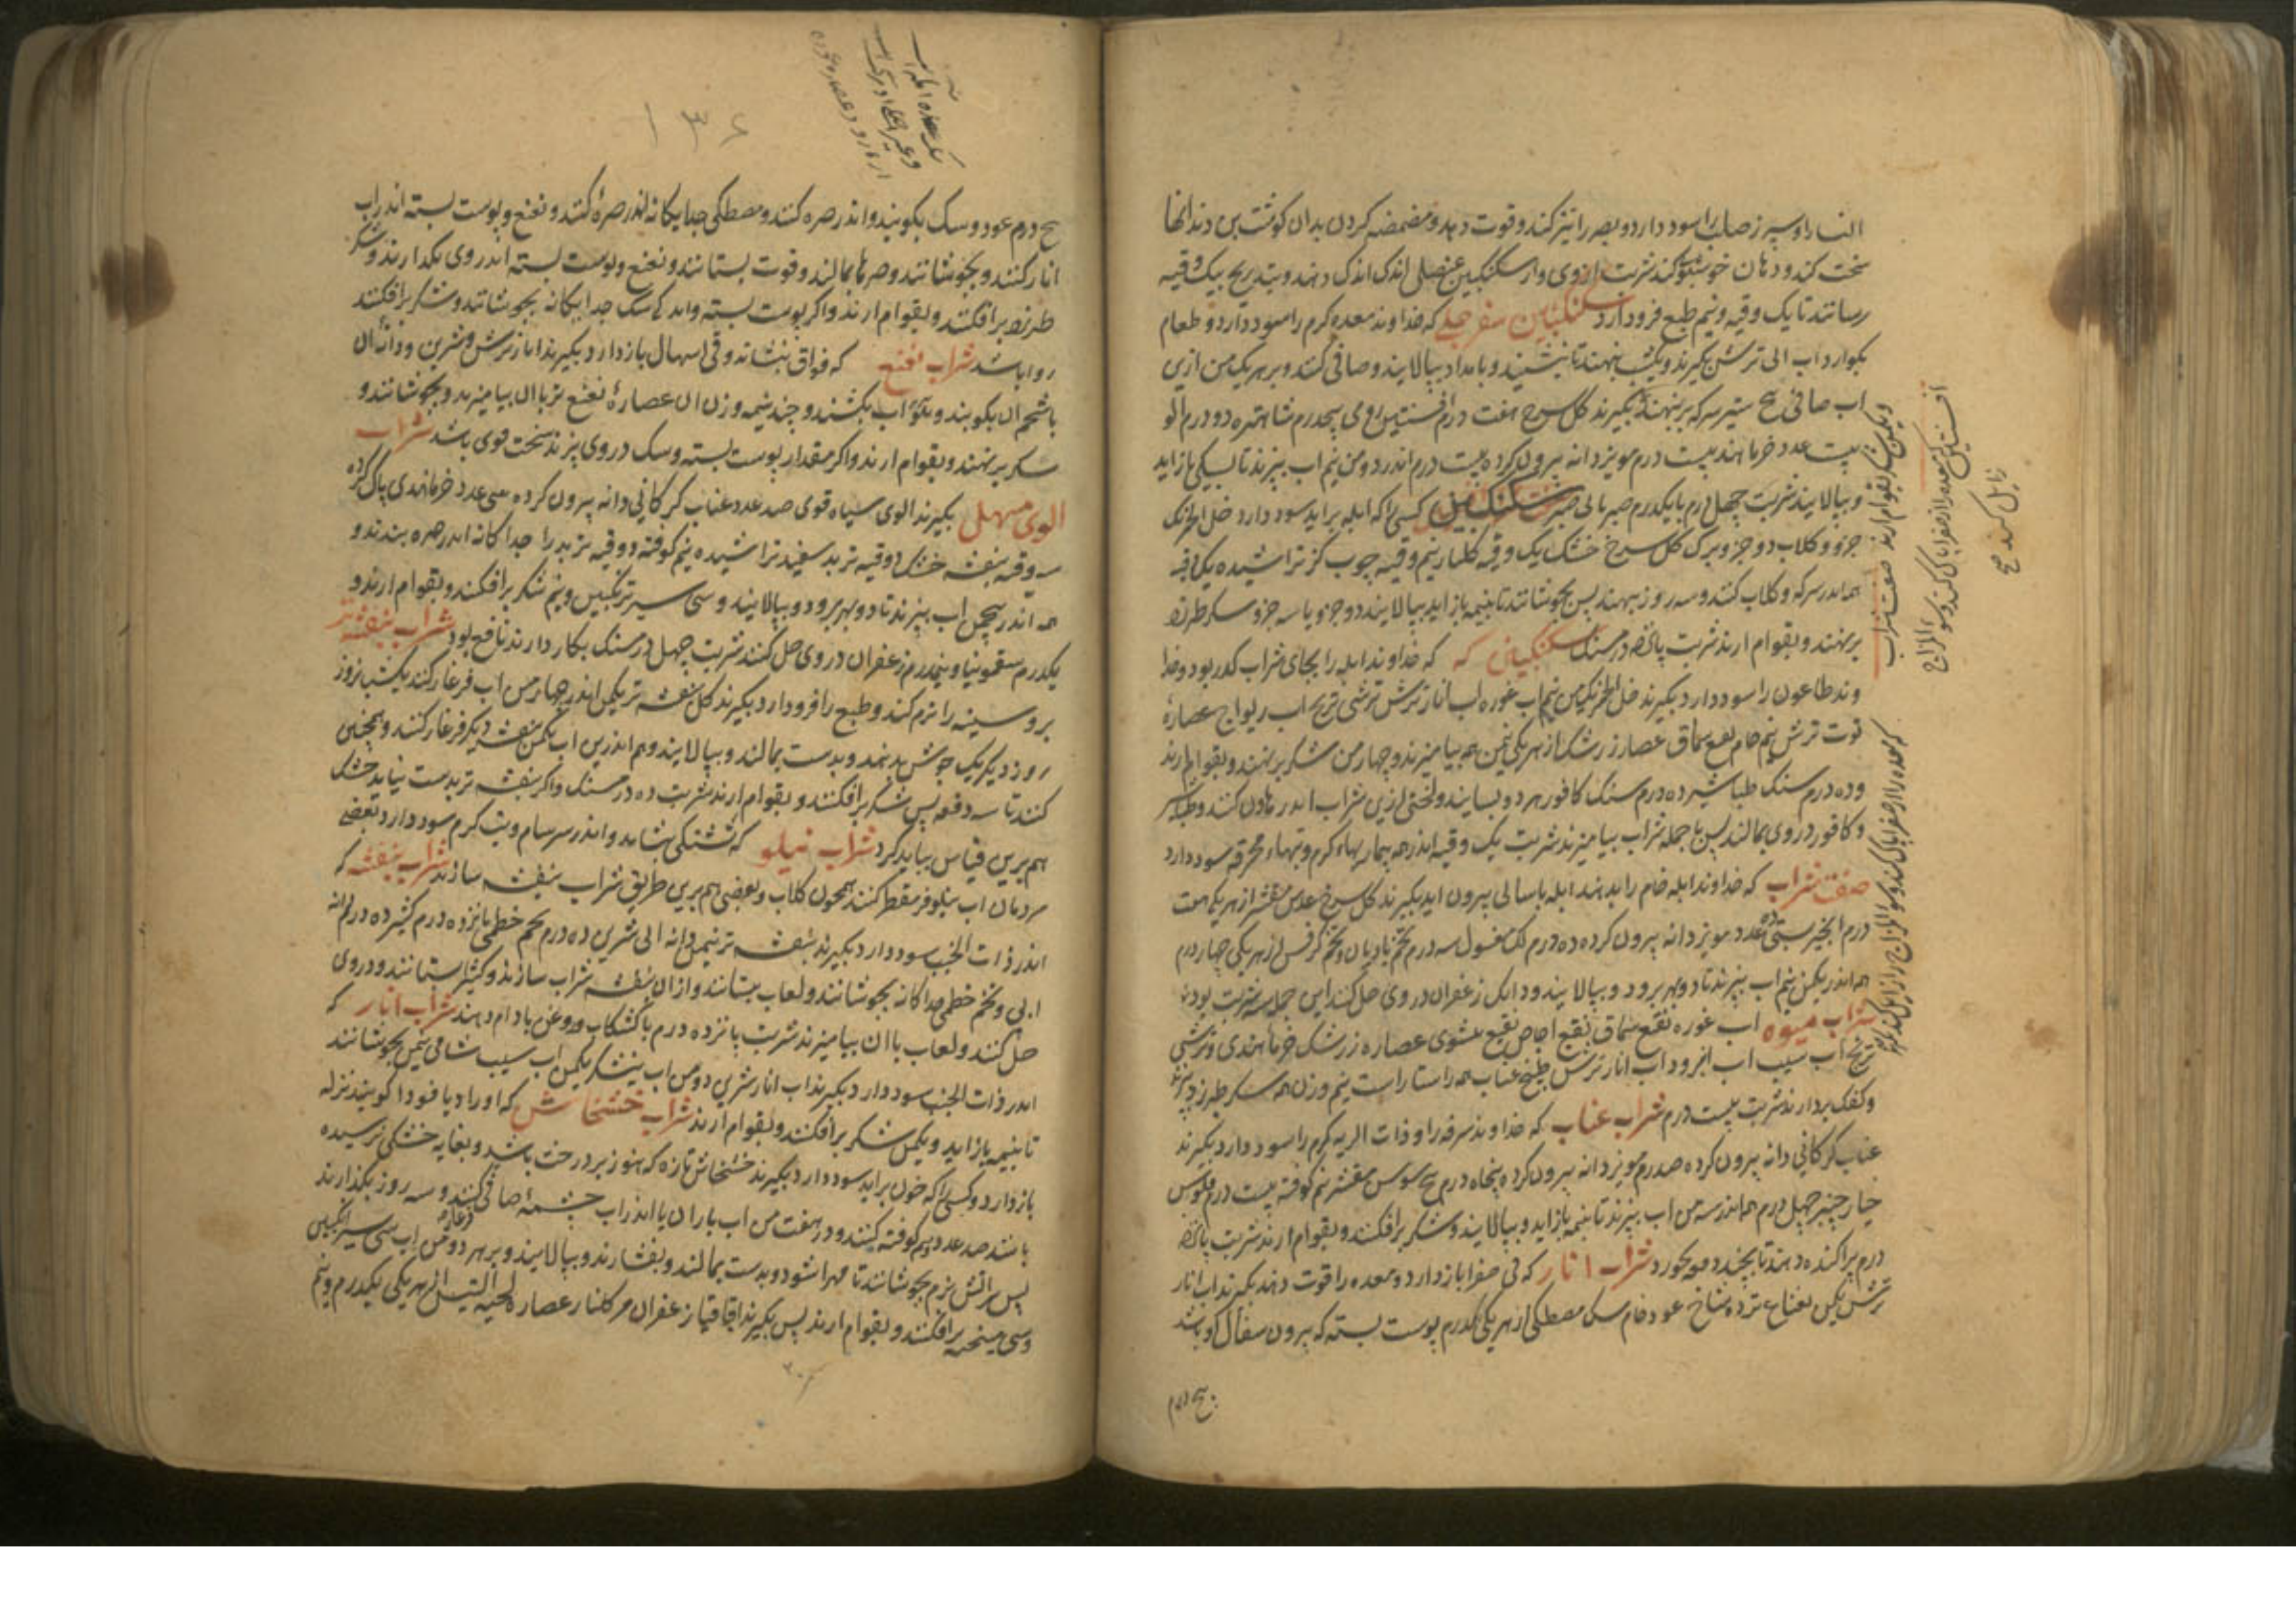 النسا را و سپرز صلب را سود دارد و بصر را تیز کند و قوت دهد و مضمضه کردن بدان کوشت بن دندانها
سخت کند و دهان خوشبوی کند شربت از وی و از سکنکبین عنصلی اندک اندک دهند و بتدریج بیک وقیه
رسانند تا یک وقیه و نیم طبع فرود ارد سکنکبین سفرجلی که خداوند معده کرم را سود دارد و طعام
بکوارد اب ابی ترش بکیرند و یکشب بنهند تا بنشیند و بامداد ببالایند و صافی کنند و بر هر یک من ازین
اب صافی پنج ستیر سرکه بر نهند بکیرند کل سرخ هفت درم افسنتین رومی پنجدرم شاهتره ده درم الو
بیست عدد خرما هندی بیست درم مویز دانه بیرون کرده بیست درم اندر دو من نیم اب بپزند تا بیکی باز اید
و ببالایند شربت چهل درم با یکدرم صبر سکنکبین کسی را که ابله براید سود دارد خل خمر یک
جزو و کلاب دو جزو برک کل سرخ خشک یک وقیه کلنار نیم وقیه چوب کز تراشیده یک وقیه
همه اندر سرکه و کلاب کنند و سه روز بنهند پس بجوشانند تا بنیمه باز اید ببالایند دو جزو یا سه جزو سکر طبرزد
بر نهند و بقوام ارند شربت پانزده درمسنک سکنکبین که خداوند ابله را بجای شراب کدر بود و خدا
وند طاعون را سود دارد بکیرند خل الخمر یک من نیم اب غوره اب انار ترش ترشی ترنج اب ریواج عصاره
توت ترش نیم خام نقیع سماق عصار زرشک از هر یکی نیمن همه بیامیزند و چهار من شکر بر نهند و بقوام ارند
و ده درم سنک طباشیر ده درم سنک کافور هر دو بسایند و لختی ازین شراب اندر هاون کنند و طباشیر
و کافور در وی بمالند پس با جمله شراب بیامیزند شربت یک وقیه اندر همه بیماریهاء کرم و تبهاء محرقه سود دارد
صفت شراب که خداوند ابله خام را بدهند ابله باسانی بیرون اید بکیرند کل سرخ عدس مقشر از هر یکی هفت
درم انجیر بستی ده عدد مویز دانه بیرون کرده ده درم لک مغسول سه درم تخم بادیان و تخم کرفس از هر یکی چهار درم
همه اندر یکمن نیم اب بپزند تا دو بهر برود و ببالایند و دانک زعفران در وی حل کنند این جمله سه شربت بود
شراب میوه اب غوره نقیع سماق نقیع اجاص نقیع مشوی عصاره زرشک خرما هندی و ترشی
ترنج اب سیب اب امرود اب انار ترش طبیخ عناب همه راستا راست نیم وزن همه سکر طبرزد بپزند
و کفک بردارند شربت بیست درم شراب عناب که خداوند سرفه را و ذات الریه کرم را سود دارد بکیرند
عناب کرکانی دانه بیرون کرده صد درم مویز دانه بیرون کرده پنجاه درم بیخ سوس مقشر نیم کوفته بیست درم فلوس
خیار چنبر چهل درم همه اندر سه من اب بپزند تا بنیمه باز اید و ببالایند و شکر برافکنند و بقوام ارند شربت پانزده
درم پراکنده دهند تا بخسبد و می خورد شراب انار که قی صفرا باز دارد و معده را قوت دهد بکیرند اب انار
ترش یکمن نعناع تر ده شاخ عود خام سک مصطکی از هر یکی یکدرم پوست بسته که بیرون سفال او باشد
پنج درم
ولیکن بقوام ارند صفت شراب
افسنتین که معده را از صفرا پاک کند و سوء المزاج
زایل کند صح
که معده را از صفرا پاک کند و سوء المزاج را زایل کند
۱۳۶
پنج درم عود و سک بکوبند و اندر صره کنند و مصطکی جدایکانه اندر صره کنند و نعنع و پوست بسته اندر اب
انار کنند و بجوشانند و صرها بمالند و قوت بستانند و نعنع و پوست بسته اندر وی بکذارند و شکر
طبرزد برافکنند و بقوام ارند و اکر پوست بسته و سک جدایکانه بجوشانند و شکر برافکنند
روا باشد شراب نعنع که فواق بنشاند و قی و اسهال باز دارد بکیرند انار ترش و شیرین و دانه ان
با شحم ان بکوبند و اب بکشند و چند نیمه وزن ان عصاره نعنع تر با ان بیامیزند و بجوشانند و
سکر بر نهند و بقوام ارند و اکر مقدار پوست بسته و سک در وی پزند سخت قوی باشد شراب
الوی مسهل بکیرند الوی سیاه قوی صد عدد عناب کرکانی دانه بیرون کرده سی عدد خرما هندی پاک کرده
سه وقیه بنفشه خشک دو وقیه تربد سفید تراشیده نیم کوفته دو وقیه تربد را جداکانه اندر صره بندند و
همه اندر پنج من اب بپزند تا دو بهر برود و ببالایند و سی سیر ترنکبین و نیم شکر برافکنند و بقوام ارند و
یکدرم سقمونیا و نیمدرم زعفران در وی حل کنند شربت چهل درمسنک بکار دارند نافع بود شراب بنفشه تر
بر و سینه را نرم کند و طبع را فرود ارد بکیرند کل بنفشه تر یکمن اندر چهار من اب فرغار کنند یکشبانروز
روز دیکر یک جوش بدهند و بدست بمالند و ببالایند و هم اندرین اب یکمن بنفشه دیکر فرغار کنند و همچنین
کنند تا سه دفعه پس شکر برافکنند و بقوام ارند شربت ده درمسنک و اکر بنفشه تر بدست نیاید خشک
هم برین قیاس بباید کرد شراب نیلوفر که تشنکی بنشاند و اندر سرسام و تب کرم سود دارد بعضی
مردمان اب نیلوفر مقطر کنند همچون کلاب و بعضی هم برین طریق شراب بنفشه سازند شراب بنفشه که
اندر ذات الجنب سود دارد بکیرند بنفشه تر نیمن دانه ابی شیرین ده درم تخم خطمی پانزده درم کثیرا ده درم دانه
ابی و تخم خطمی جداکانه بجوشانند و لعاب بستانند و از ان بنفشه شراب سازند و کثیرا بستانند و در وی
حل کنند و لعاب با ان بیامیزند شربت پانزده درم با کشکاب و روغن بادام دهند شراب انار که
اندر ذات الجنب سود دارد بکیرند اب انار شیرین دو من اب نیشکر یکمن اب سیب شامی نیمن بجوشانند
تا بنیمه باز اید و یکمن شکر برافکنند و بقوام ارند شراب خشخاش که او را دیاقوذا کویند نزله
باز دارد و کسی را که خون براید سود دارد بکیرند خشخاش تازه که هنوز بر درخت باشد و بغایه خشکی نرسیده
باشد صد عدد نیم کوفته کنند و در هفت من اب باران یا اندر اب چشمه صافی کنند و سه روز بکذارند
پس بر اتش نرم بجوشانند تا مهرا شود و بدست بمالند و بفشارند و ببالایند و بر هر دو من اب سی سیر انکبین
و سی میبختج برافکنند و بقوام ارند پس بکیرند اقاقیا زعفران مر کلنار عصاره لحیه التیس از هر یکی یکدرم و نیم